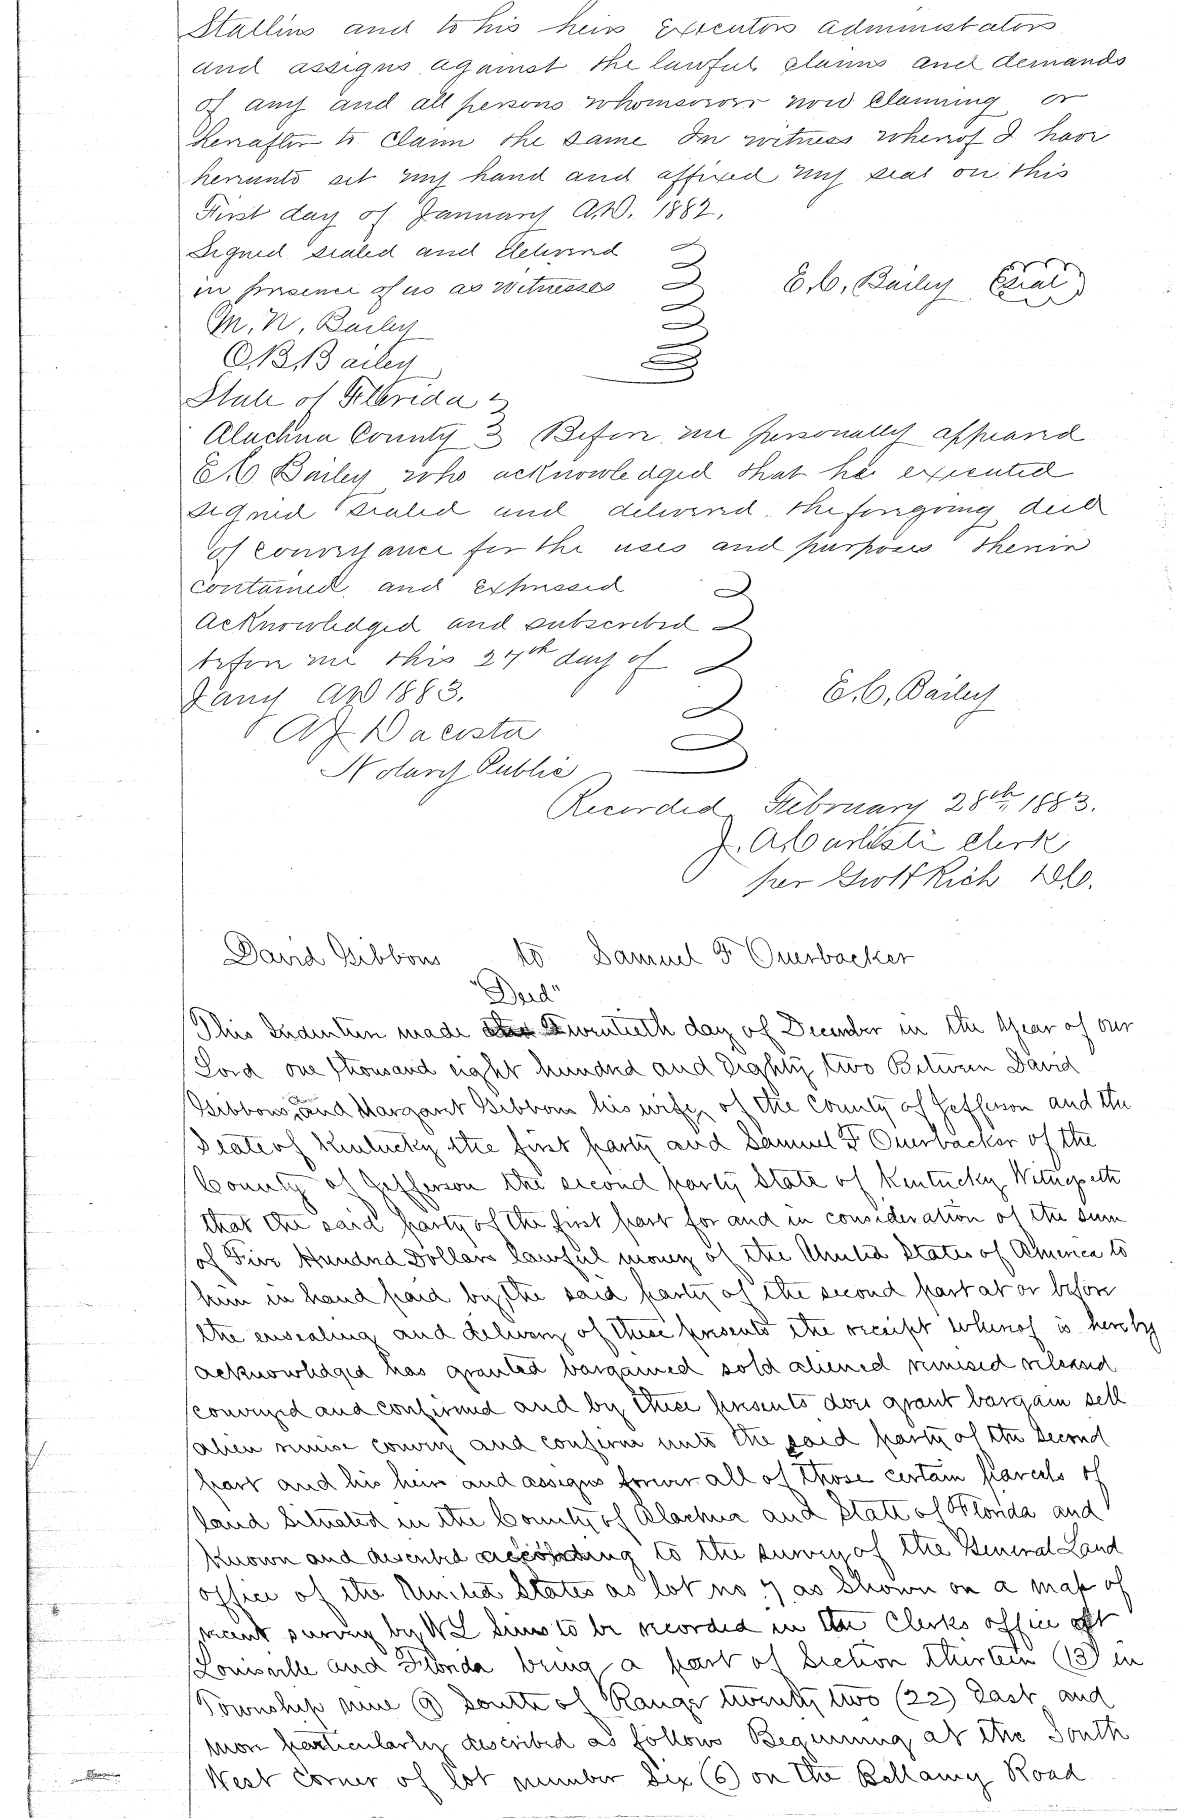 Stallins and to his heirs Executors administrators
and assigns against the lawful claims and demands
of any and all persons whomsoever now Claiming or
hereafter to Claim the same In witness whereof I have
hereunto set my hand and affixed my seal on this
First day of January A.D. 1882.
Signed sealed and delivered
in presence of us as witnesses
E.C. Bailey (Seal)
M. N. Bailey
O.B. Bailey
State of Florida
Alachua County } Before me personally appeared
E.C Bailey who acknowledged that he executed
signed sealed and delivered the foregoing deed
of conveyance for the uses and purposes therein
contained and expressed
Acknowledged and subscribed
before me this 27th day of
Jany AD 1883.
E.C. Bailey
A J Dacosta
Notary Public
Recorded February 28th 1883.
J. A. Carlisle Clerk
per Rich D.C.
David Gibbons to Samuel F Ouerbacker
"Deed"
This Indenture made Twentieth day of December in the Year of our
Lord one thousand eight hundred and Eighty two Between David
Gibbons and Margaret Gibbons his wife of the County of Jefferson and the
State of Kentucky the first party and Samuel F Ouerbacker of the
County of Jefferson the second party State of Kentucky Witnesseth
that the said party of the first part for and in consideration of the sum
of Five Hundred Dollars lawful money of the United States of America to
him in hand paid by the said party of the second part at or before
the ensealing and delivery of these presents the receipt whereof is hereby
acknowledged has granted bargained sold aliened remised released
conveyed and confirmed and by these presents does grant bargain sell
alien remise convey and confirm unto the said party of the second
part and his heirs and assigns forever all of those certain parcels of
land Situated in the County of Alachua and State of Florida and
Known and described according to the survey of the General Land
office of the United States as lot no 7 as Shown on a map of
recent survey by W L Sims to be recorded in the Clerks office at
Louisville and Florida being a part of Section thirteen (13) in
Township nine (9) South of Range twenty two (22) East and
more particularly described as follows Beginning at the South
West Corner of lot number Six (6) on the Bellamy Road